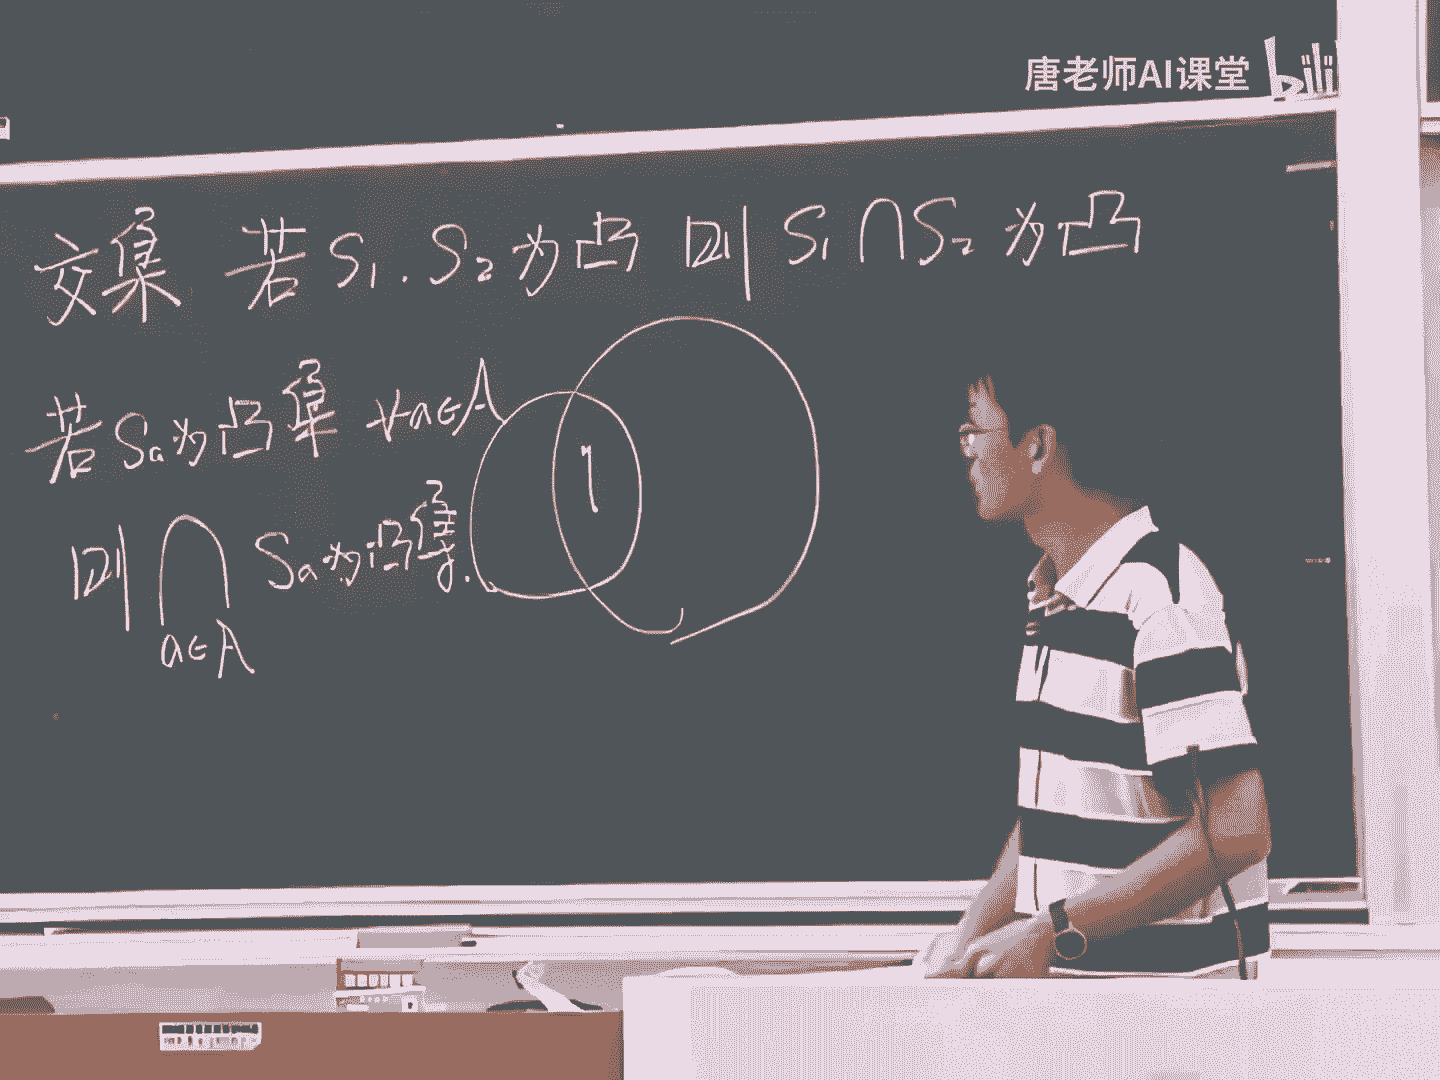 唐老师AI课堂 bili
交集 若 S₁. S₂ 为凸 则 S₁ ∩ S₂ 为凸
若 Sₐ 为凸集 ∀a∈A
则 ∩ Sₐ 为凸集.
a∈A